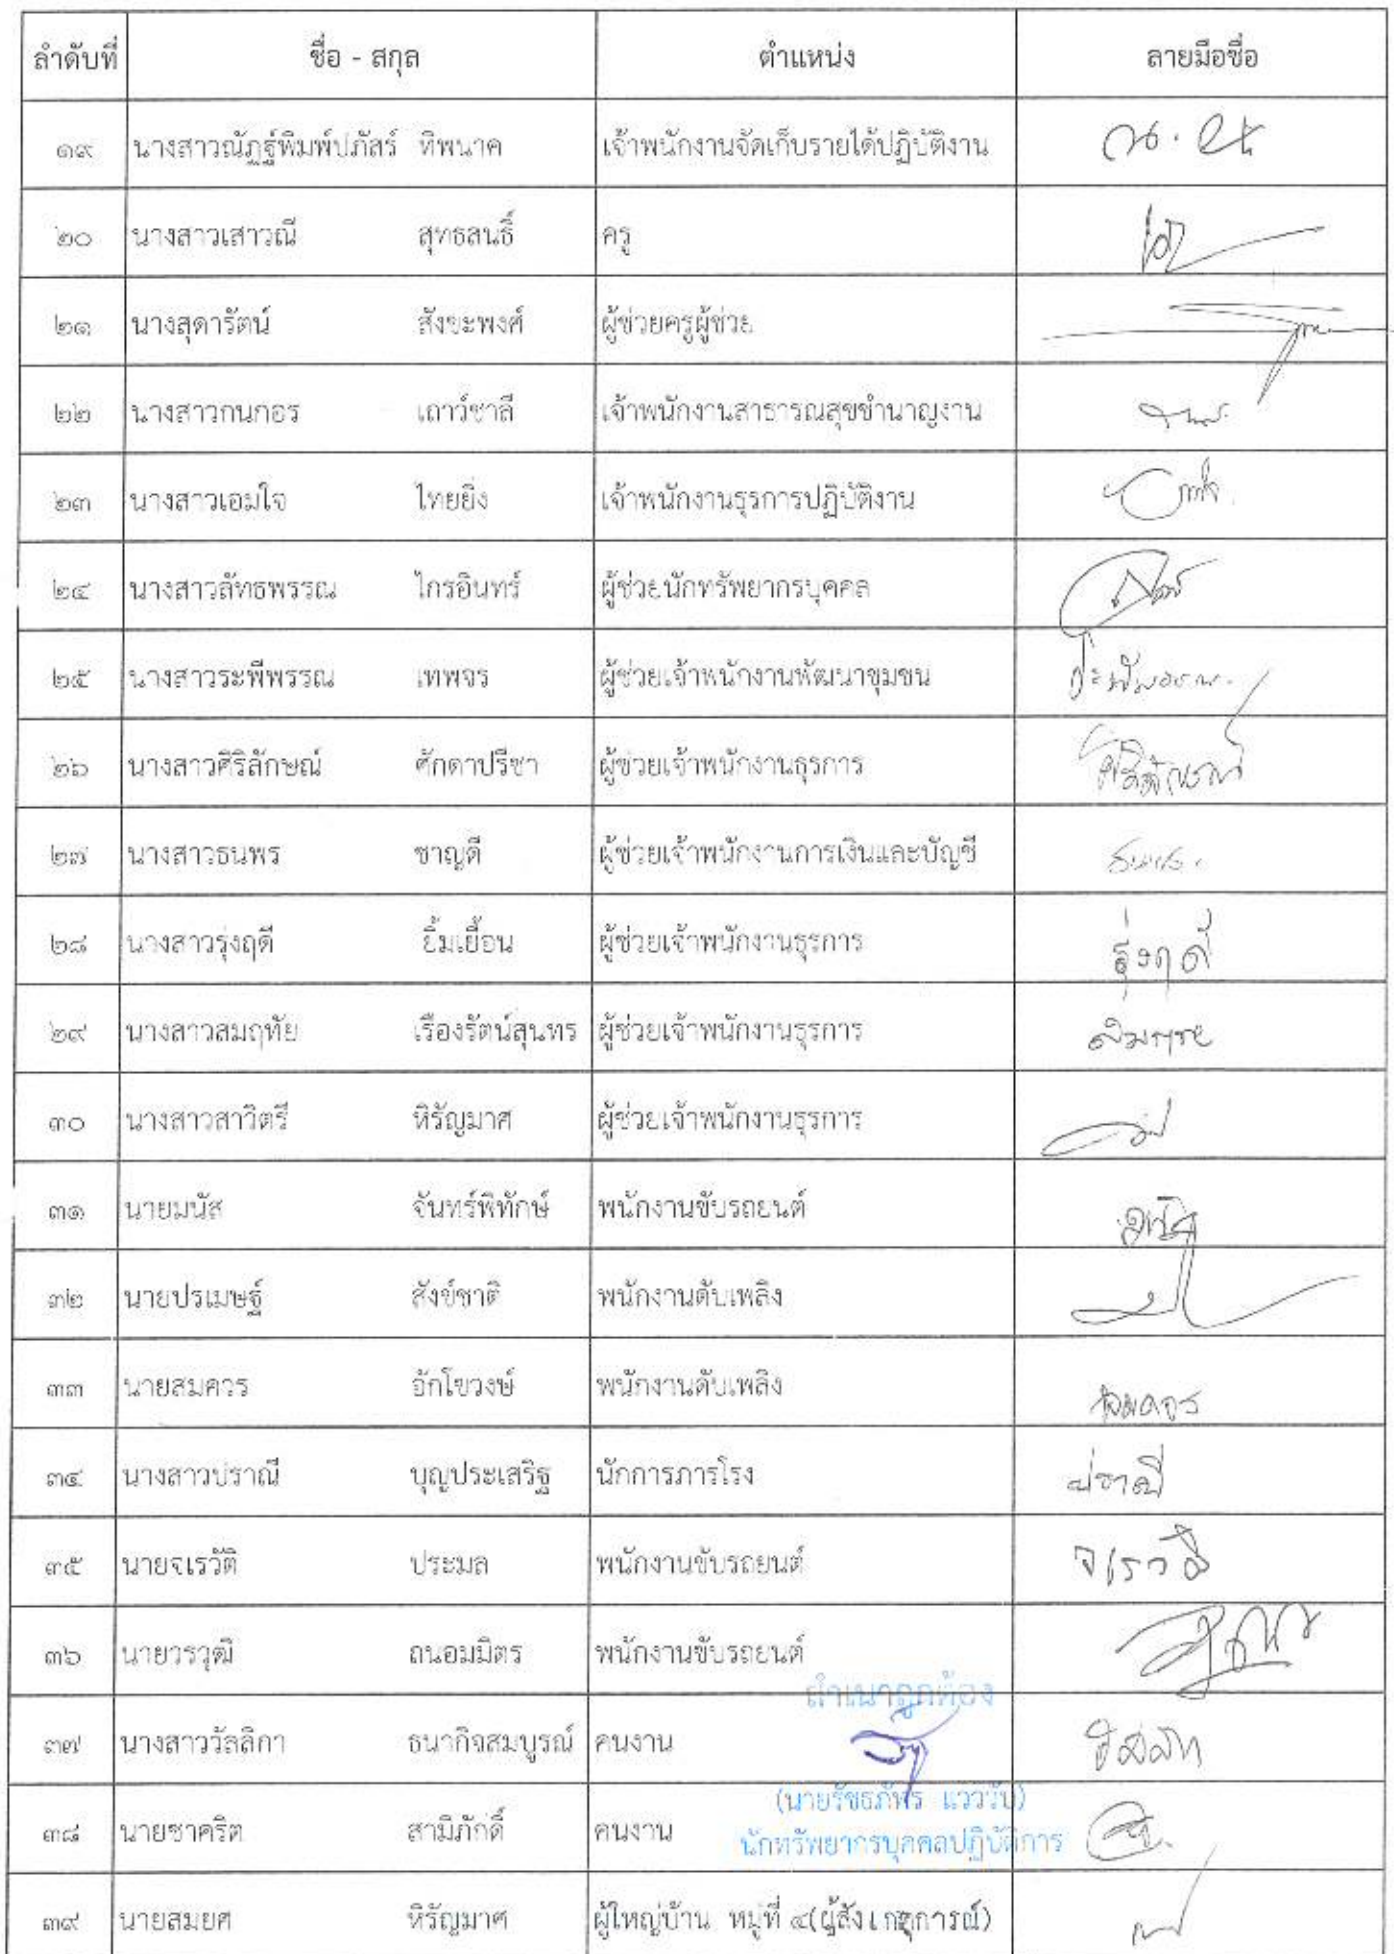 ลำดับที่ ชื่อ - สกุล ตำแหน่ง ลายมือชื่อ
๑๙ นางสาวณัฏฐ์พิมพ์ปภัสร์ ทิพนาค เจ้าพนักงานจัดเก็บรายได้ปฏิบัติงาน
๒๐ นางสาวเสาวณี สุทธสนธิ์ ครู
๒๑ นางสุดารัตน์ สังขะพงศ์ ผู้ช่วยครูผู้ช่วย
๒๒ นางสาวกนกอร เถาว์ชาลี เจ้าพนักงานสาธารณสุขชำนาญงาน
๒๓ นางสาวเอมใจ ไทยยิ่ง เจ้าพนักงานธุรการปฏิบัติงาน
๒๔ นางสาวลัทธพรรณ ไกรอินทร์ ผู้ช่วยนักทรัพยากรบุคคล
๒๕ นางสาวระพีพรรณ เทพจร ผู้ช่วยเจ้าพนักงานพัฒนาชุมชน
๒๖ นางสาวศิริลักษณ์ ศักดาปรีชา ผู้ช่วยเจ้าพนักงานธุรการ
๒๗ นางสาวธนพร ชาญดี ผู้ช่วยเจ้าพนักงานการเงินและบัญชี ธนพร
๒๘ นางสาวรุ่งฤดี ยิ้มเยื้อน ผู้ช่วยเจ้าพนักงานธุรการ รุ่งฤดี
๒๙ นางสาวสมฤทัย เรืองรัตน์สุนทร ผู้ช่วยเจ้าพนักงานธุรการ
๓๐ นางสาวสาวิตรี หิรัญมาศ ผู้ช่วยเจ้าพนักงานธุรการ
๓๑ นายมนัส จันทร์พิทักษ์ พนักงานขับรถยนต์
๓๒ นายปรเมษฐ์ สังข์ชาติ พนักงานดับเพลิง
๓๓ นายสมควร อักโขวงษ์ พนักงานดับเพลิง สมควร
๓๔ นางสาวปราณี บุญประเสริฐ นักการภารโรง ปราณี
๓๕ นายจเรวัติ ประมล พนักงานขับรถยนต์ จเรวัติ
๓๖ นายวรวุฒิ ถนอมมิตร พนักงานขับรถยนต์
สำเนาถูกต้อง
๓๗ นางสาววัลลิกา ธนากิจสมบูรณ์ คนงาน
(นายรัชธภัทร แวววับ)
๓๘ นายชาคริต สามิภักดิ์ คนงาน
นักทรัพยากรบุคคลปฏิบัติการ
๓๙ นายสมยศ หิรัญมาศ ผู้ใหญ่บ้าน หมู่ที่ ๔(ผู้สังเกตุการณ์)